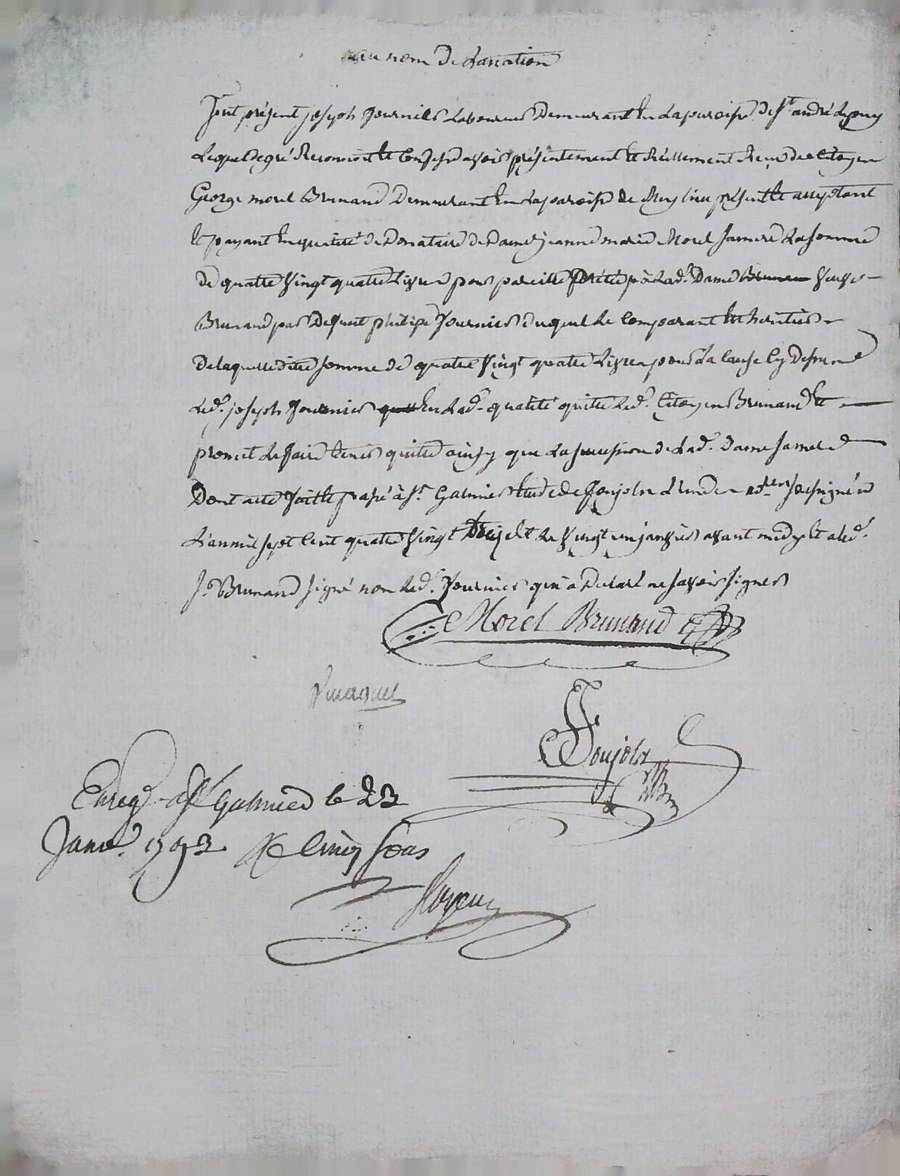 au nom de la nation
fut présent joseph fournier Laboureur demeurant en la paroisse de St andré Le puy
Lequel de gré Reconnoit et Confesse avoir présentement et Réellement Reçu de Citoyen
George morel Brunand demeurant en la paroisse de Meylieu présent et acceptant
et payant en qualité de Donataire de dame jeanne marie Morel Jamere La somme
de quatre Vingt quatre Livres pour pareille à Lad. Dame Veuve
Brunand par Deffunt philipe fournier duquel Le Comparant est heritier
de laquelle ditte somme de quatre Vingt quatre Livres pour La Cause Cy dessus
Led. joseph fournier en Lad. qualité quitte Led. Citoyen Brunand et
promet Le faire tenir quitte ainsy que La succession de Lad. dame Jamere
Dont acte fait et passé à St Galmier etude de Foujols L'un des notres soussignés
L'an mil sept Cent quatre Vingt treize et Le Vingt un janvier avant midy et a led.
Sr. Brunand signé non Led. fournier qui a Declaré ne savoir signer
Morel Brunand
Foujols
Enreg. à St Galmier le 23
Janv. 1793 Rx Cinq sous